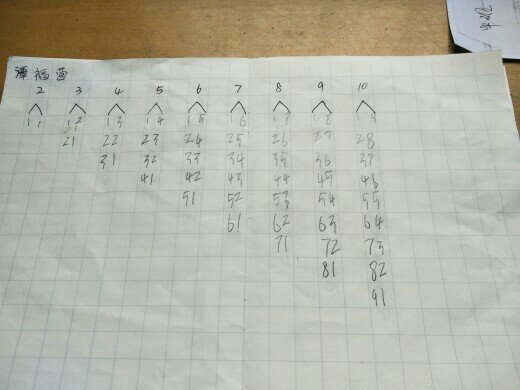 潭福营
2 3 4 5 6 7 8 9 10
11 12 13 14 15 16 17 18 9
21 22 23 24 25 26 27 28
31 32 33 34 35 36 37
41 42 43 44 45 46
51 52 53 54 55
61 62 63 64
71 72 73
81 82
91